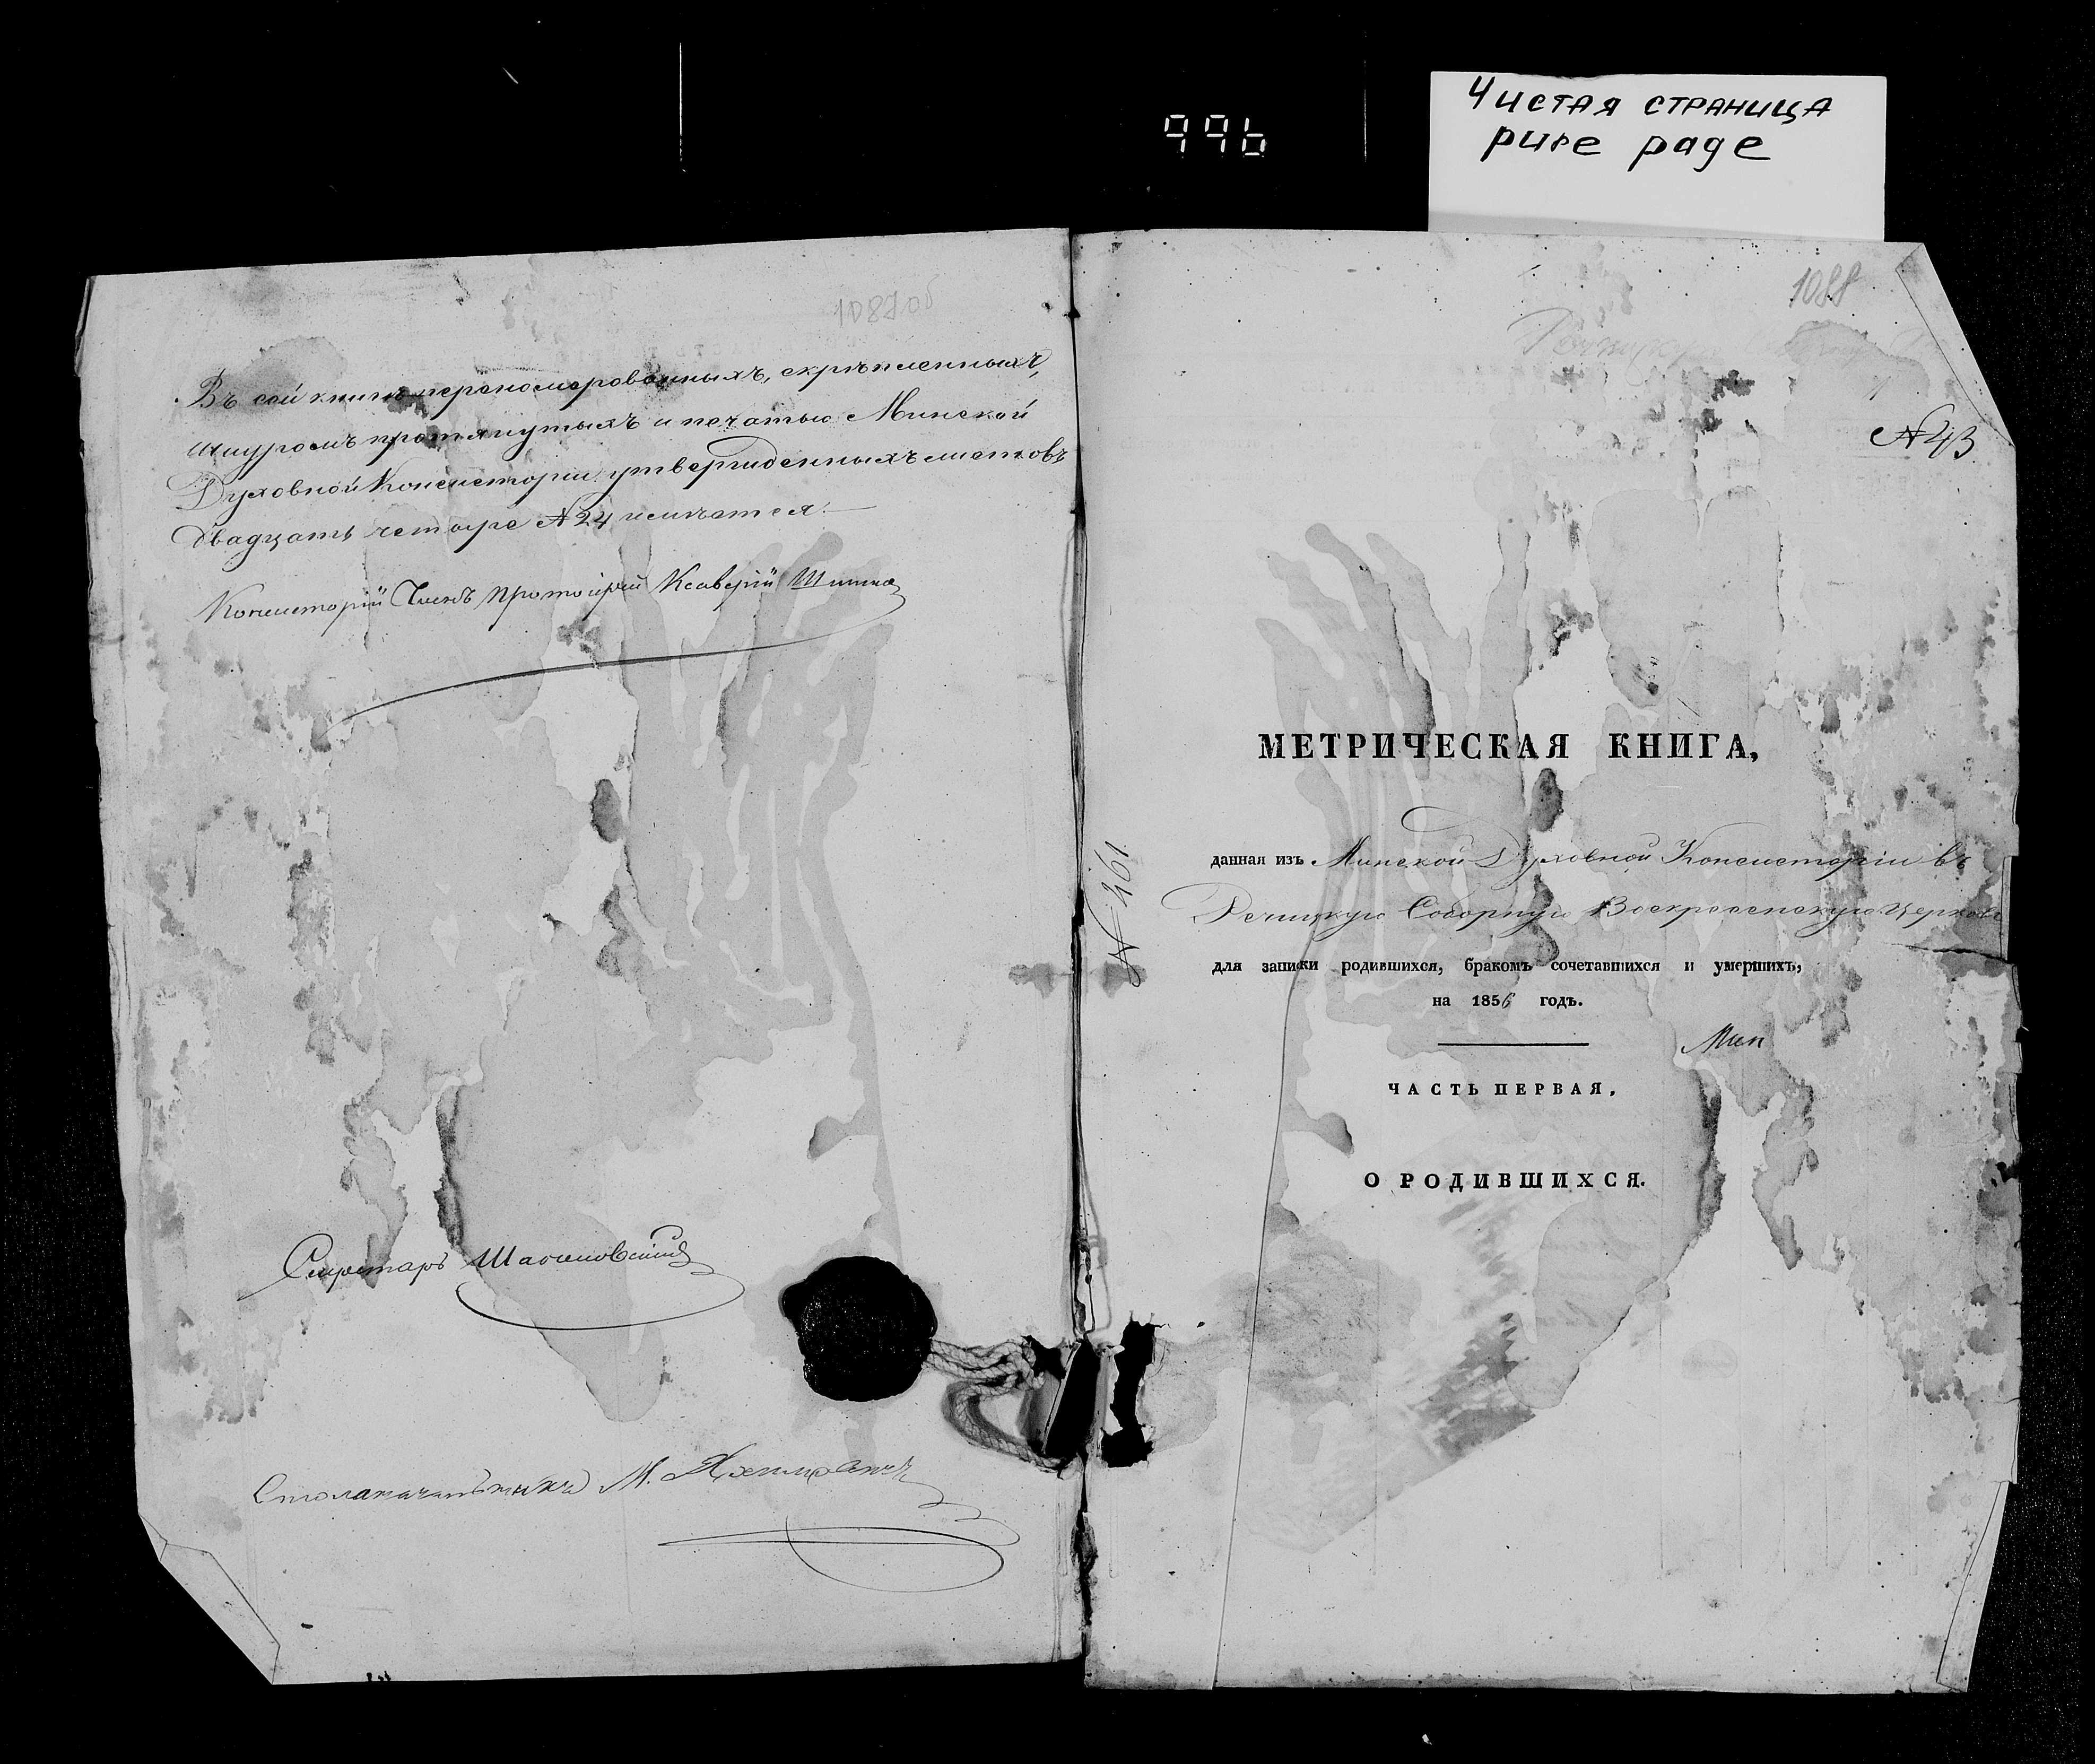 996
Чистая страница
pure page
1087об
Въ сей книгѣ перенумерованныхъ, скрѣпленныхъ,
шнуромъ протянутыхъ и печатью Минской
Духовной Консисторіи утвержденныхъ листовъ
двадцать четыре № 24 числится.
Консисторіи Членъ Протоіерей Ксаверій
Секретарь
Столоначальникъ М.
1088
№ 43
МЕТРИЧЕСКАЯ КНИГА,
данная изъ Минской Духовной Консисторіи въ
Речицкую Соборную Воскресенскую Церковь
для записки родившихся, бракомъ сочетавшихся и умершихъ,
на 1856 годъ.
ЧАСТЬ ПЕРВАЯ,
О РОДИВШИХСЯ.
№ 461